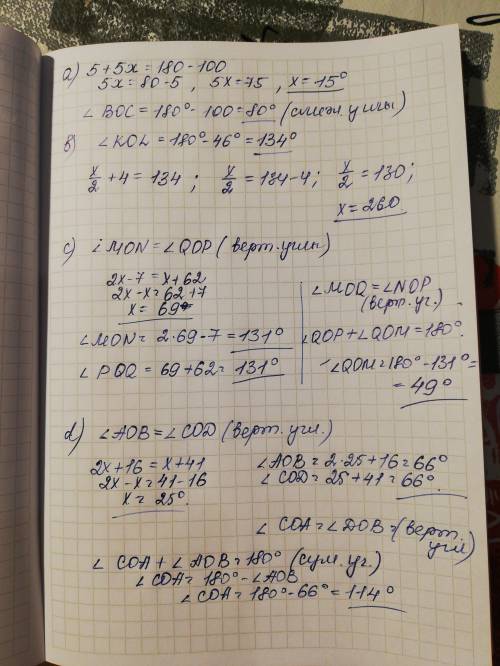 a) 5+5x=180-100
5x=80-5, 5x=75, x=15°
∠BOC=180°-100=80° (смеж. углы)
b) ∠KOL=180°-46°=134°
x/2+4=134; x/2=134-4; x/2=130;
x=260
c) ∠MON=∠QOP (верт. углы)
2x-7=x+62
2x-x=62+7
x=69°
∠MON=2·69-7=131°
∠PQQ=69+62=131°
∠MOQ=∠NOP
(верт. уг.)
∠QOP+∠QOM=180°.
∠QOM=180°-131°=
=49°
d) ∠AOB=∠COD (верт. угл.)
2x+16=x+41
2x-x=41-16
x=25°.
∠AOB=2·25+16=66°
∠COD=25+41=66°.
∠COA=∠DOB=(верт.
угл)
∠COA+∠AOB=180° (сум. уг.)
∠COA=180°-∠AOB
∠COA=180°-66°=114°